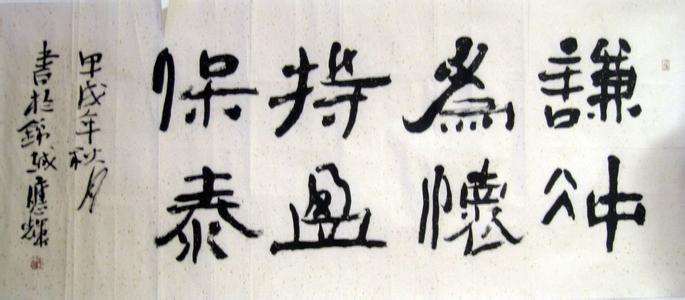 謙冲
為懷
持盈
保泰
甲戌年秋月
書於錦城應輝